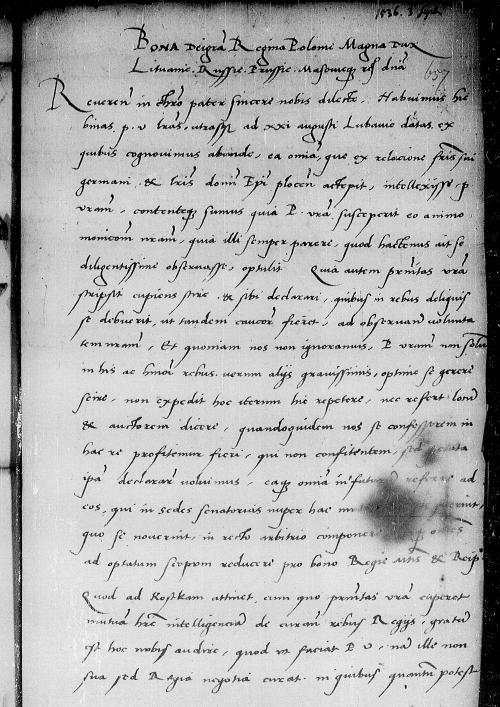 1536. 3 Sept
BONA Dei gra Regina Polonie Magna Dux
Lituanie. Russie. Prussie. Masovieq3 etc dna
657
Reveren in Chro pater sincere nobis dilecte. Habuimus hic
binas, p. v. lras, utrasq3 ad XXI augusti Lubavie datas, ex
quibus cognovimus abunde, ea omia, que ex relacione fris sui
germani & lris domi Epi plocen accepit, intellexisse p.
vram, contenteq3 sumus quia P. vra susceperit eo animo
monicom nram, quia illi semper parere, quod hactenus ait se
diligentissime observasse, optulit Quia autem prnitas vra
scripsit cupiens scire & sibi declarari, quibus in rebus deliquis
se debuerit, ut tandem caucior fieret, ad observand volunta
tem nram, Et quoniam nos non ignoramus, P. vram non solu
in his ac minori rebus, verum alijs gravissimis, optime se gerere
scire, non expedit hoc iterum hic repetere, nec refert locu
& auctorem dicere, quandoquidem nos se confessorem in
hac re profitemur fieri, qui non confitentem, sed
ipa declarari voluimus, eaq3 omia in futuru referre ad
eos, qui in sedes senatorias nuper hac
quo se noverint, in recto arbitrio componere
ad optatum scopum reducere pro bono Regie mtis & Reip
Quod ad Kostkam attinet, cum quo prnitas vra cuperet
mutua hre intelligencia de curan rebus Regijs, gratu
est hoc nobis audire, quod ut faciat P. V. nam ille non
sua sed Regia negotia curat, in quibus quantu potest